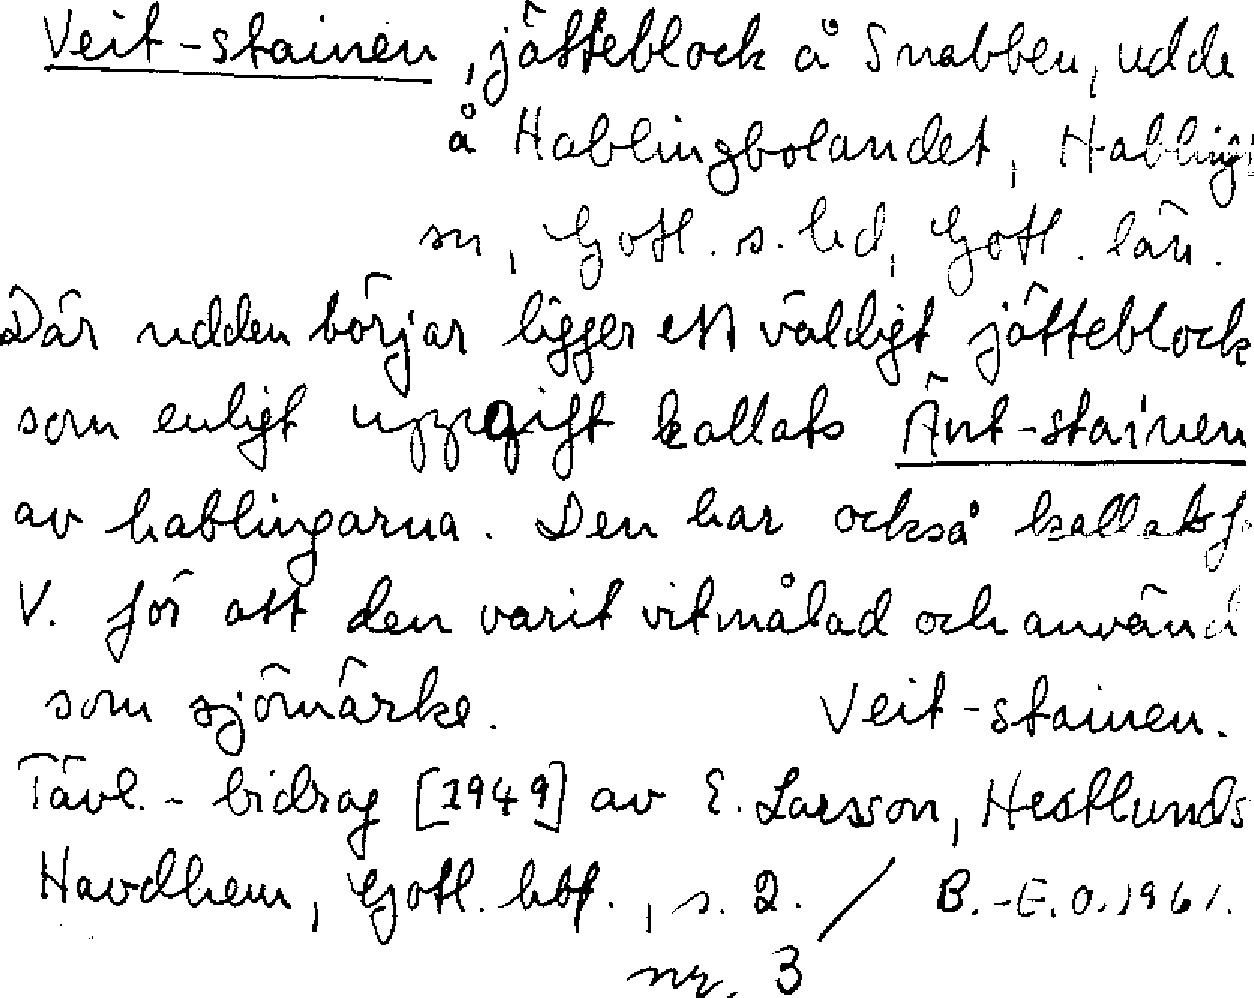 Veit-stainen, jätteblock å Snabben, udde
å Hablingbolandet, Habling
sn, Gotl. s. hd, Gotl. län.
Där udden börjar ligger ett väldigt jätteblock
som enligt uppgift kallats Änt-stainen
av hablingarna. Den har också kallats f.
V. för att den varit vitmålad och använd
som sjömärke. Veit-stainen.
Tävl.-bidrag [1949] av E. Larsson, Hestlunds
Havdhem, Gotl. hbf., s. 2. / B.-E. O. 1961.
nr. 3